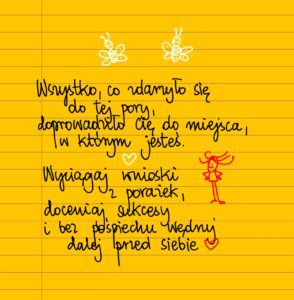 Wszystko, co zdarzyło się
do tej pory,
doprowadziło Cię do miejsca,
w którym jesteś.
Wyciągaj wnioski
z porażek,
doceniaj sukcesy
i bez pośpiechu wędruj
dalej przed siebie